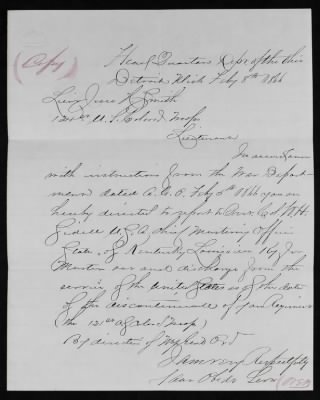 (Copy)
Head Quarters Dept of the Ohio
Detroit Mich Feby 8th 1866
Lieut Jesse H Smith
121st U. S. Colored Troops
Lieutenant
In accordance
with instructions from the War Depart-
ment dated A. G. O. Feby 5th 1866 you are
hereby directed to report to Col W. H.
U.S.A. Chief Mustering Officer
State of Kentucky Louisville Ky for
Muster out and discharge from the
service of the United States as of the date
of the discontinuance of your Regiment
(the 121st Colored Troops)
By direction of Maj Genl Ord
I am very Respectfully
Your Obedt Servt